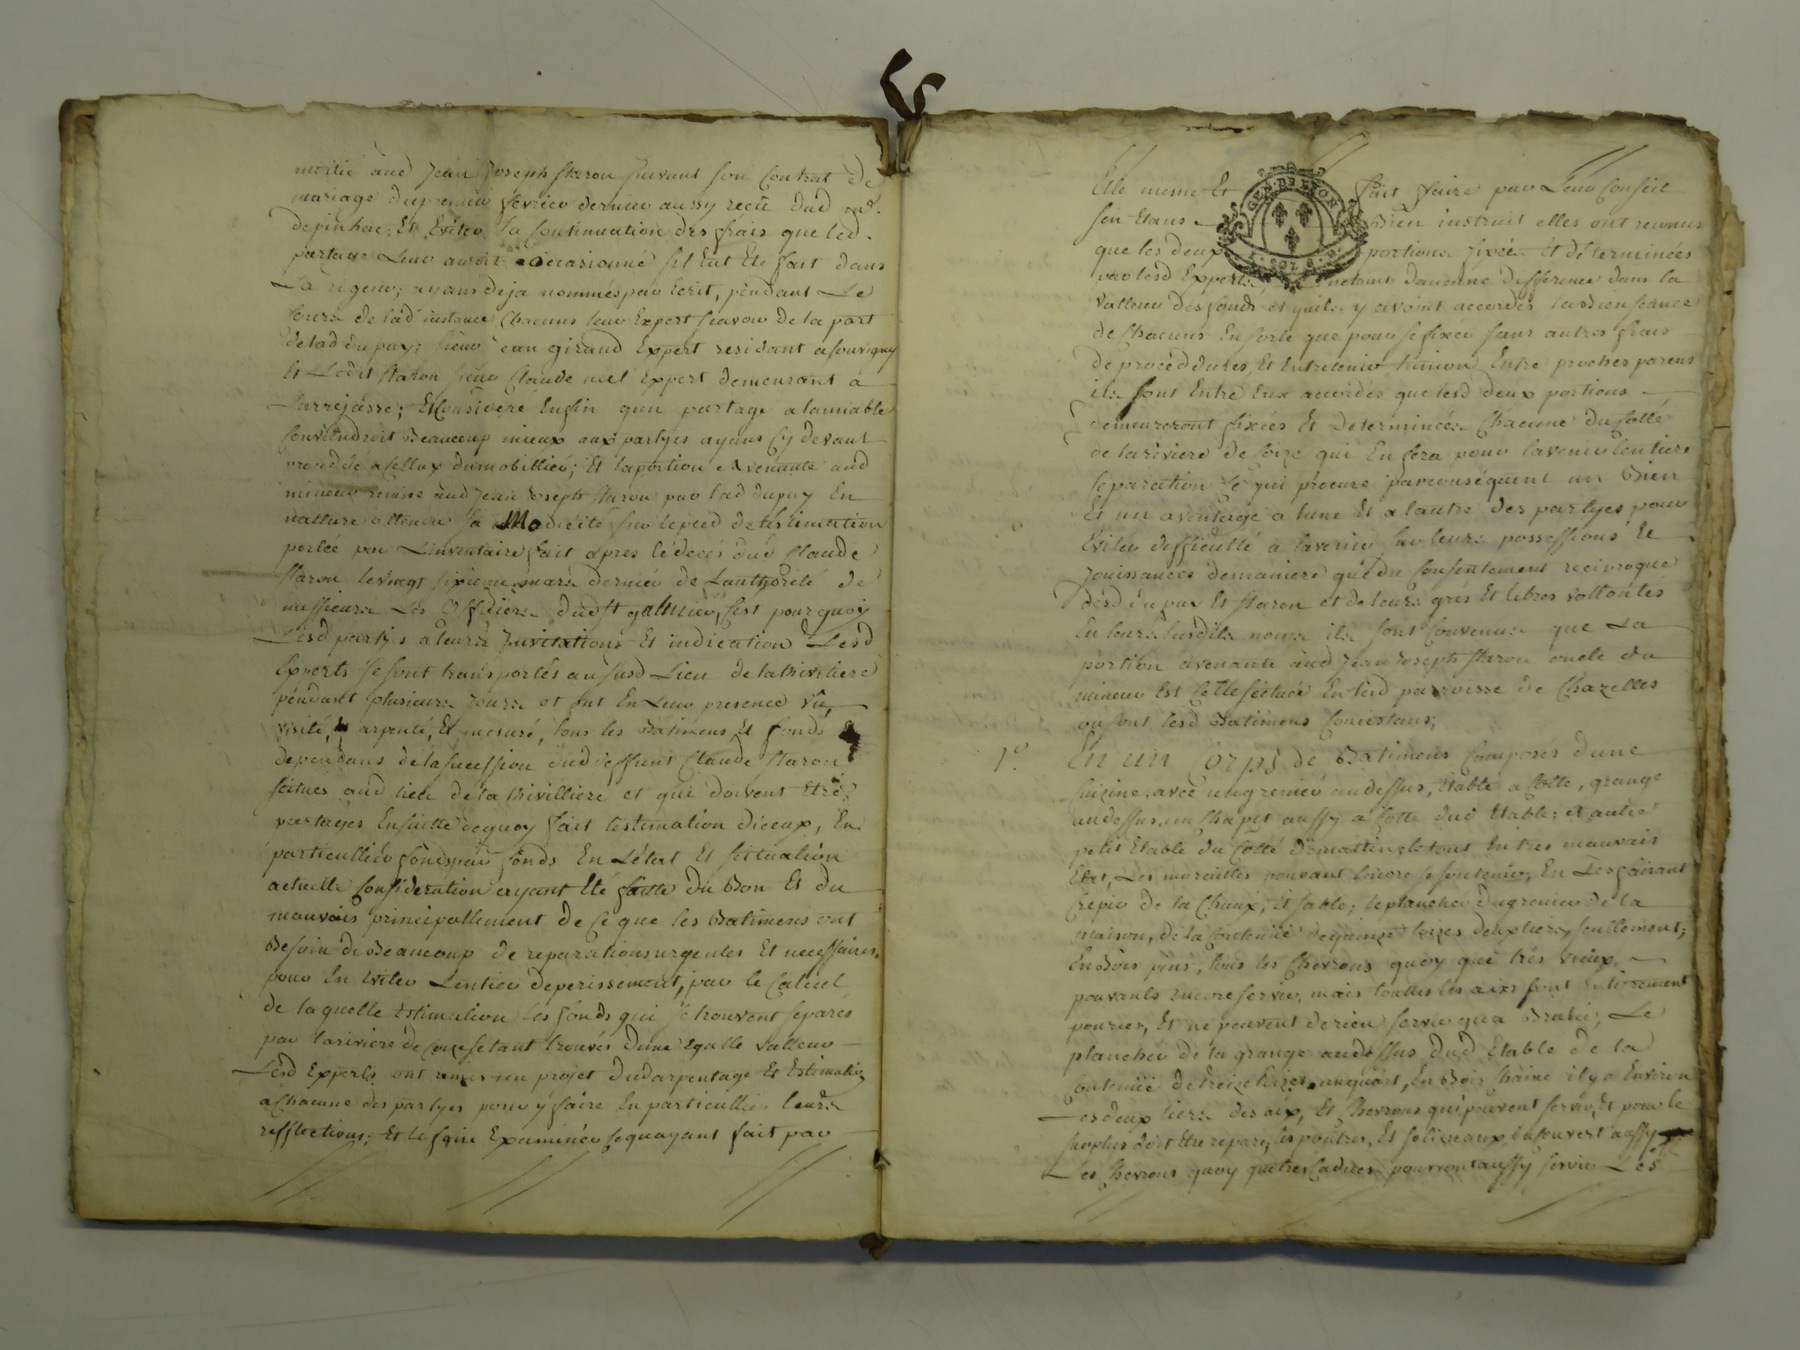 moitié aud Jean Joseph Staron suivant son Contrat de
mariage du premier fevrier dernier aussy recû dud me.
depinhac; Et Eviter la Continuation des frais que led.
partage Leur auroit occasionné sil Eut Eté fait dans
La rigeur; ayans deja nommés par écrit, pendant Le
Cours de lad. instance Chacuns leur Expert sçavoir de la part
de lad dupuy; sieur Jean giraud Expert residant a souvigny
Et Ledit Staron sieur Claude Expert demeurant à
Larrejasse; Et Consideré Enfin qun partage a lamiable
Conviendroit Beaucoup mieux aux partyes ayans Cy devant
procedé a celluy dumobillier; Et la portion avenante aud
mineur remise aud Jean Joseph Staron par lad dupuy En
natture attendu sa Modicité sur le pied de lestimation
portée par Linventaire fait apres le decés dud Claude
Staron le vingt sixieme mars dernier de Lauthorité de
messieurs Les Officiers dud St galmier, sest pourquoy
Lesd partyes a leurs Invitations Et indication Lesd
Experts se sont transportés au susd Lieu de la thivilliere
pendant plusieurs Jours et ont En Leur presence vû,
visité, arpenté, Et mesuré, tous les Batimens Et fonds
dependans de la sucession dud deffunt Claude Staron
scitués aud lieu de la thivilliere et qui doivent Etre
partagés Ensuitte dequoy fait lestimation diceux, En
particullier fonds par fonds En Létat Et scituation
actuelle Consideration ayant Eté faitte du Bon Et du
mauvais principallement de Ce que les Batimens ont
Besoin de Beaucoup de reparations urgentes Et necessaires
pour En Eviter Lentier deperissement, par le Calcul
de laquelle Estimation Les fonds qui se trouvent separés
par la riviere de Coize setant trouvés dune Egalle valleur
Lesd Experts ont remis un projet dud arpentage Et Estimation
a Chacune des partyes pour y faire En particullier leurs
refflections; Et le faire Examiner Ce quayant fait par
Elle meme Et fait faire par Leur Conseil
sen Etans Bien instruit elles ont reconnus
que les deux portions fixées Et déterminées
par lesd Experts netoint daucune difference dans la
valleur des fonds et quils y avoint accordés la Bienseance
de Chacuns En sorte que pour se fixer sans autres frais
de proceddures, Et Entretenir lunion Entre proches parens
ils sont Entre Eux accordés que lesd deux portions
demeureront fixées Et determinées Chacune du Cotté
de la riviere de Coize qui En fera pour lavenir lentiere
separation Ce qui procure parconséquent un Bien
Et un aventage a lune Et a lautre des partyes pour
Eviter difficulté a lavenir sur leurs possessions Et
Jouissances demaniere que du Consentement reciproque
desd dupuy Et Staron et de leurs grés Et libres vollontés
En leurs susdits noms ils sont Convenus que La
portion avenante aud Jean Joseph Staron oncle du
mineur Est Celle scituée En lad parroisse de Chazelles
ou sont lesd Batimens Concistans;
1°. En un Corps de Batimens Composés dune
Cuizine, avec un grenier au dessus, Etable a Cotté, grange
au dessus, un Chapit aussy a Cotté dud Etable; et autre
petit Etable du Cotté de mattin, le tout En tres mauvais
Etat, Les murailles pouvant Encore se soutenir, En Les faisant
Crepir de la Chaux, Et sable; le plancher du grenier de la
maison, de la Contenue de quinze toizes deux tiers seullement;
En Bois pins, tous les Chevrons quoy que trés vieux,
pouvants Encore servir, mais touttes les aixs sont Entierement
pouries, Et ne peuvent de rien servir qua Bruler; Le
plancher de la grange au dessus dud Etable de la
Contenue de treize toizes un quart, En Bois Chaine il y a Environ
Les deux tiers des aix, Et Chevrons qui peuvent servir, Et pour le
surplus doit Etre reparé, les poutres, Et soliveaux du Couvert aussy
Les Chevrons quoy que tres Caducs pourront aussy servir Les
GEN. DE LYON